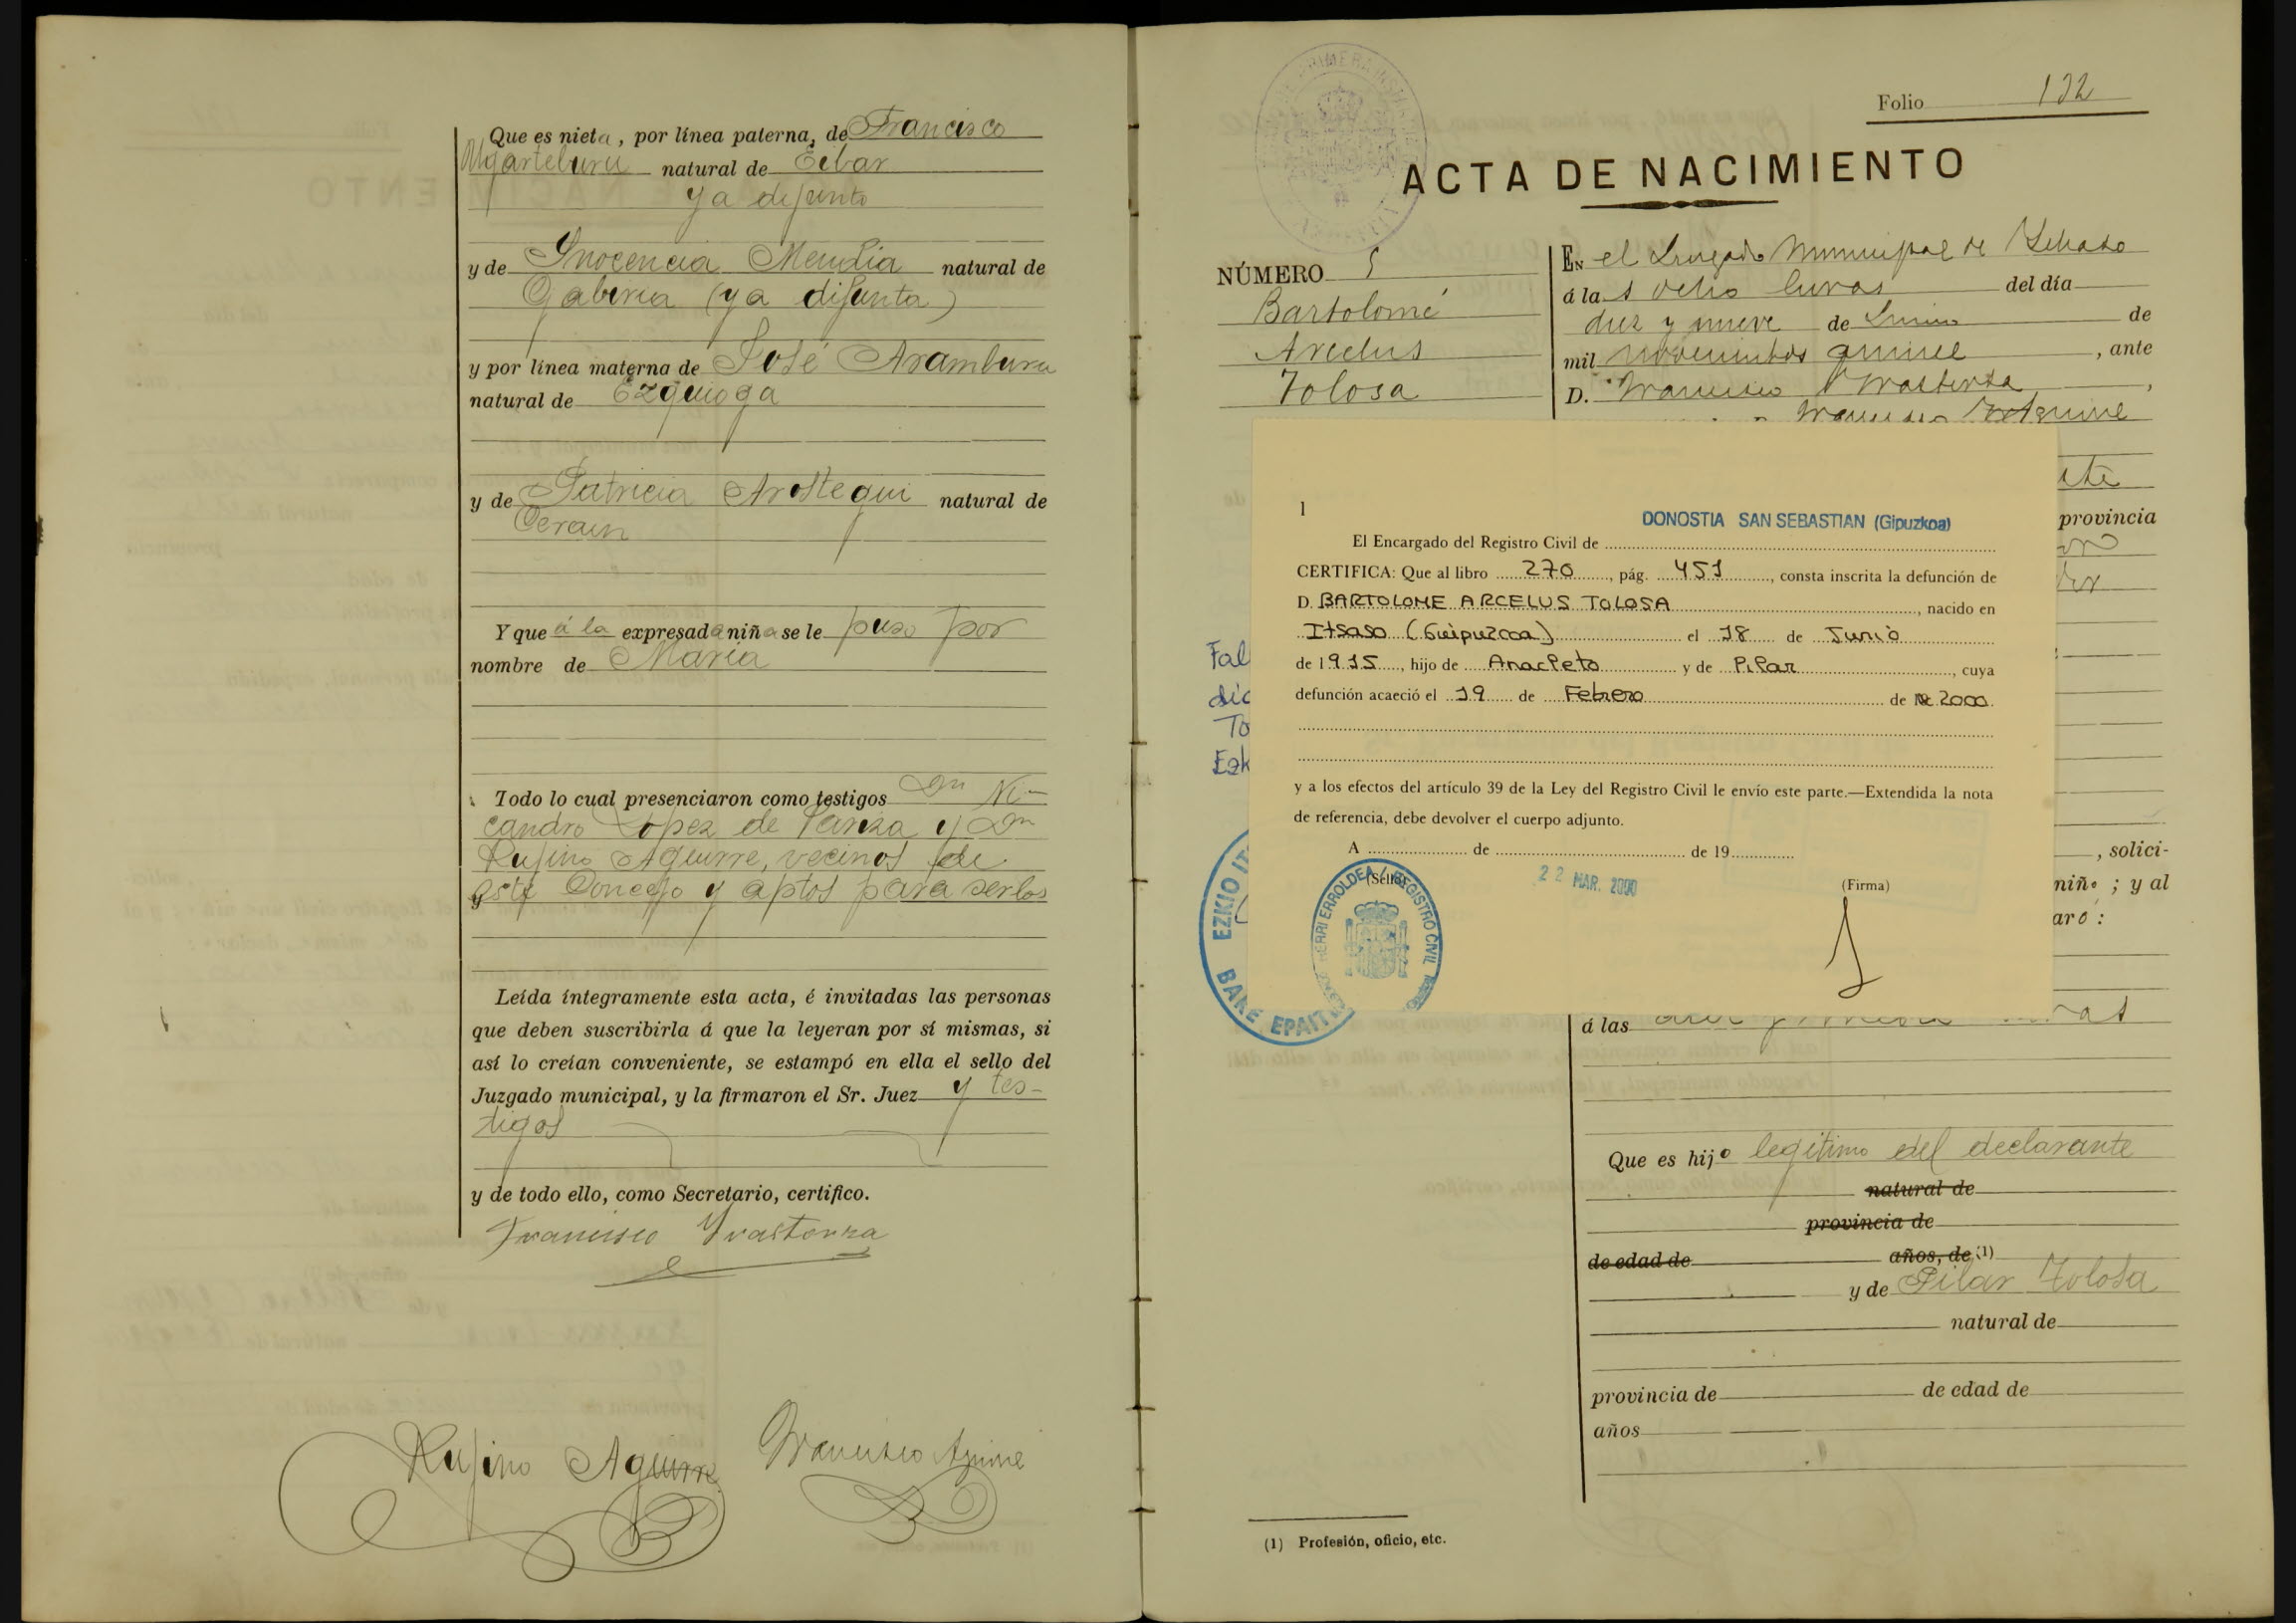 Que es nieta, por línea paterna, de Francisco
Ugarteburu natural de Eibar
ya difunto
y de Inocencia Mendia natural de
Gabiria (ya difunta)
y por línea materna de José Aramburu
natural de Ezquioga
y de Patricia Arostegui natural de
Cerain
Y que á la expresada niña se le puso por
nombre de Maria
Todo lo cual presenciaron como testigos Dn Ni-
candro Lopez de Pariza y Dn
Rufino Aguirre, vecinos de
este Concejo y aptos para serlos
Leída íntegramente esta acta, é invitadas las personas
que deben suscribirla á que la leyeran por sí mismas, si
así lo creían conveniente, se estampó en ella el sello del
Juzgado municipal, y la firmaron el Sr. Juez y tes-
tigos
y de todo ello, como Secretario, certifico.
Francisco Yrastorza
Rufino Aguirre Francisco Aguirre
Folio 132
ACTA DE NACIMIENTO
NÚMERO 5
Bartolomé
Arcelus
Tolosa
EN el Juzgado Municipal de Ychaso
á las ocho horas del día
diez y nueve de Junio de
mil novecientos quince, ante
D. Francisco Yrastorza,
Francisco Aguirre
provincia
1
DONOSTIA SAN SEBASTIAN (Gipuzkoa)
El Encargado del Registro Civil de
CERTIFICA: Que al libro 270, pág. 451, consta inscrita la defunción de
D. BARTOLOME ARCELUS TOLOSA, nacido en
Itsaso (Guipuzcoa) el 18 de Junio
de 1915, hijo de Anacleto y de Pilar, cuya
defunción acaeció el 19 de Febrero de 2000
y a los efectos del artículo 39 de la Ley del Registro Civil le envío este parte.—Extendida la nota
de referencia, debe devolver el cuerpo adjunto.
A de de 19
(Sello)
22 MAR. 2000
(Firma)
HERRI ERROLDEA / REGISTRO CIVIL
Fal
dic
To
Ezk
EZKIO IT
BAKE EPAIT
, solici-
niño; y al
aró:
á las
Que es hijo legitimo del declarante
natural de
provincia de
de edad de años, de (1)
y de Pilar Tolosa
natural de
provincia de de edad de
años
(1) Profesión, oficio, etc.